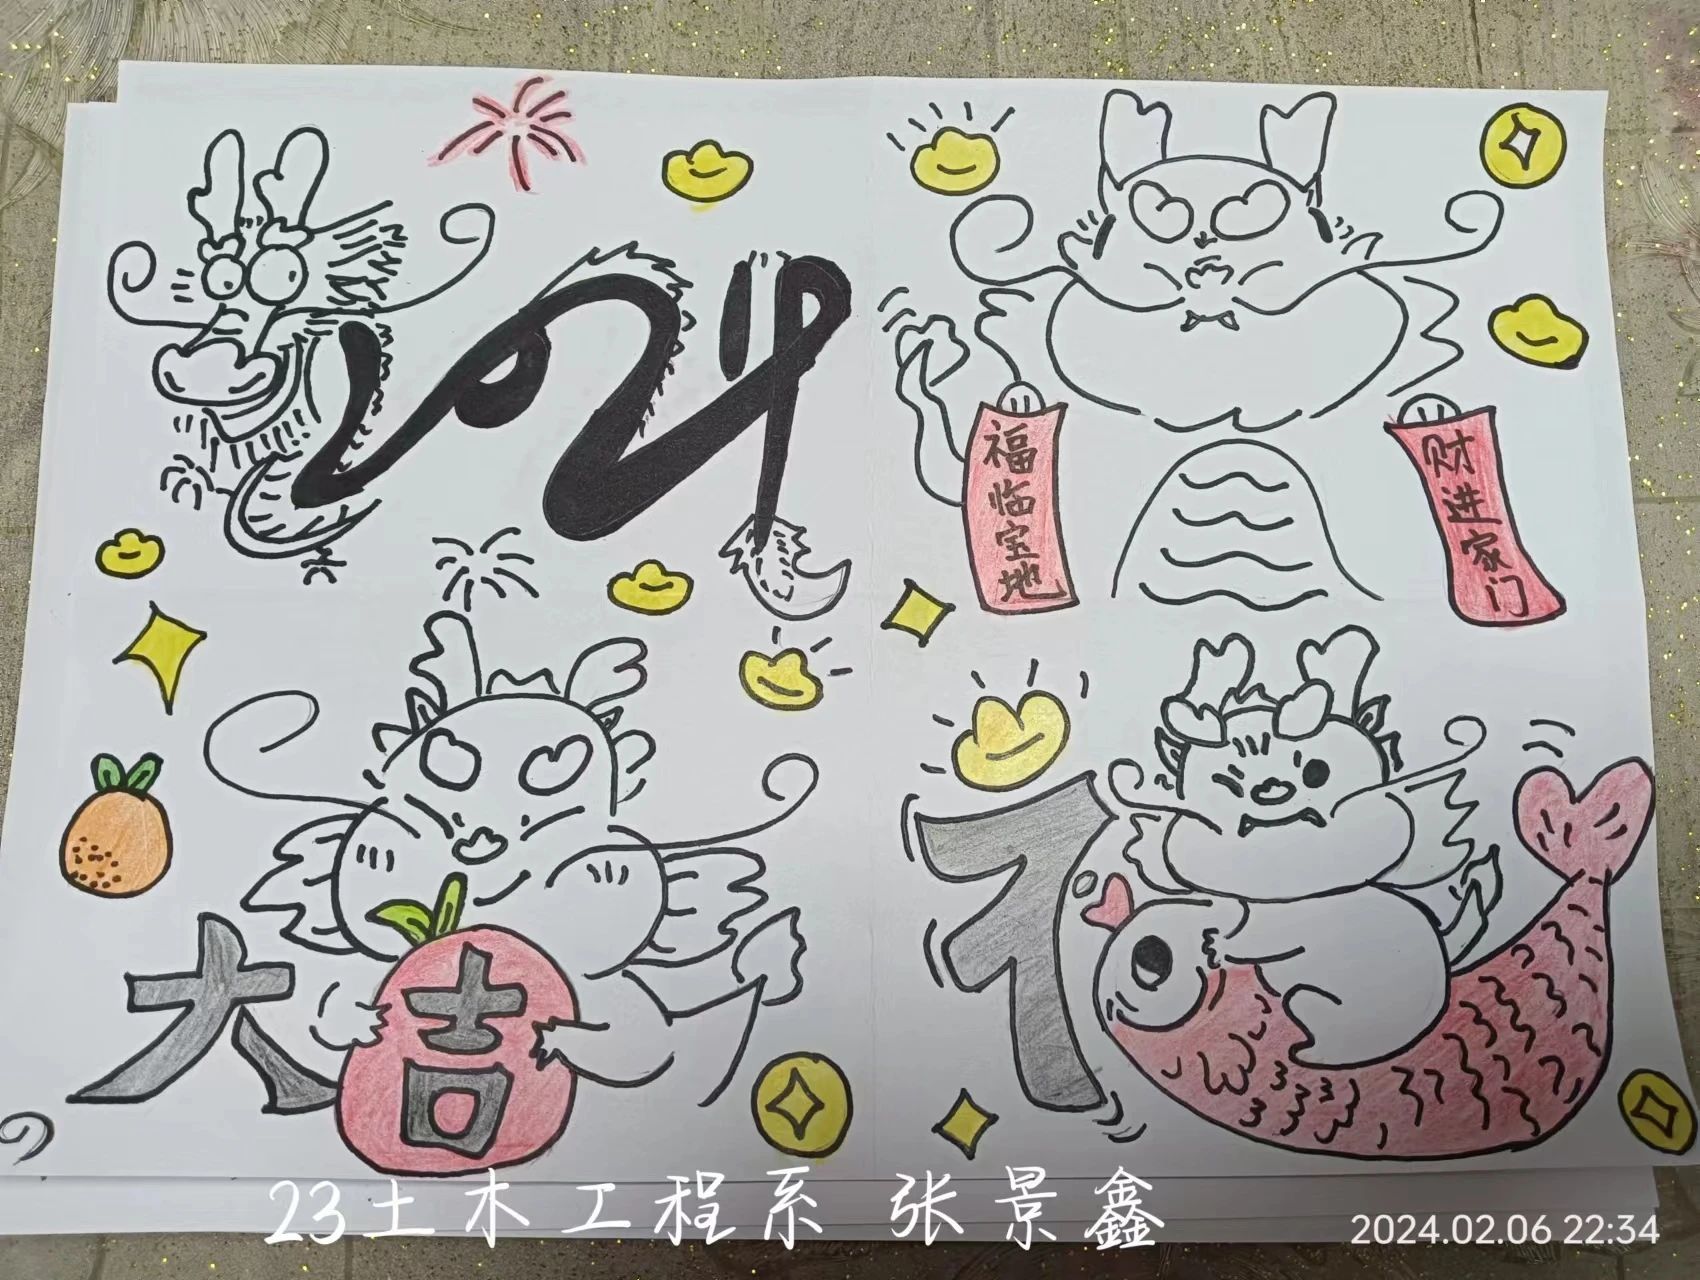 福临宝地
财进家门
大吉
23土木工程系 张景鑫
2024.02.06 22:34